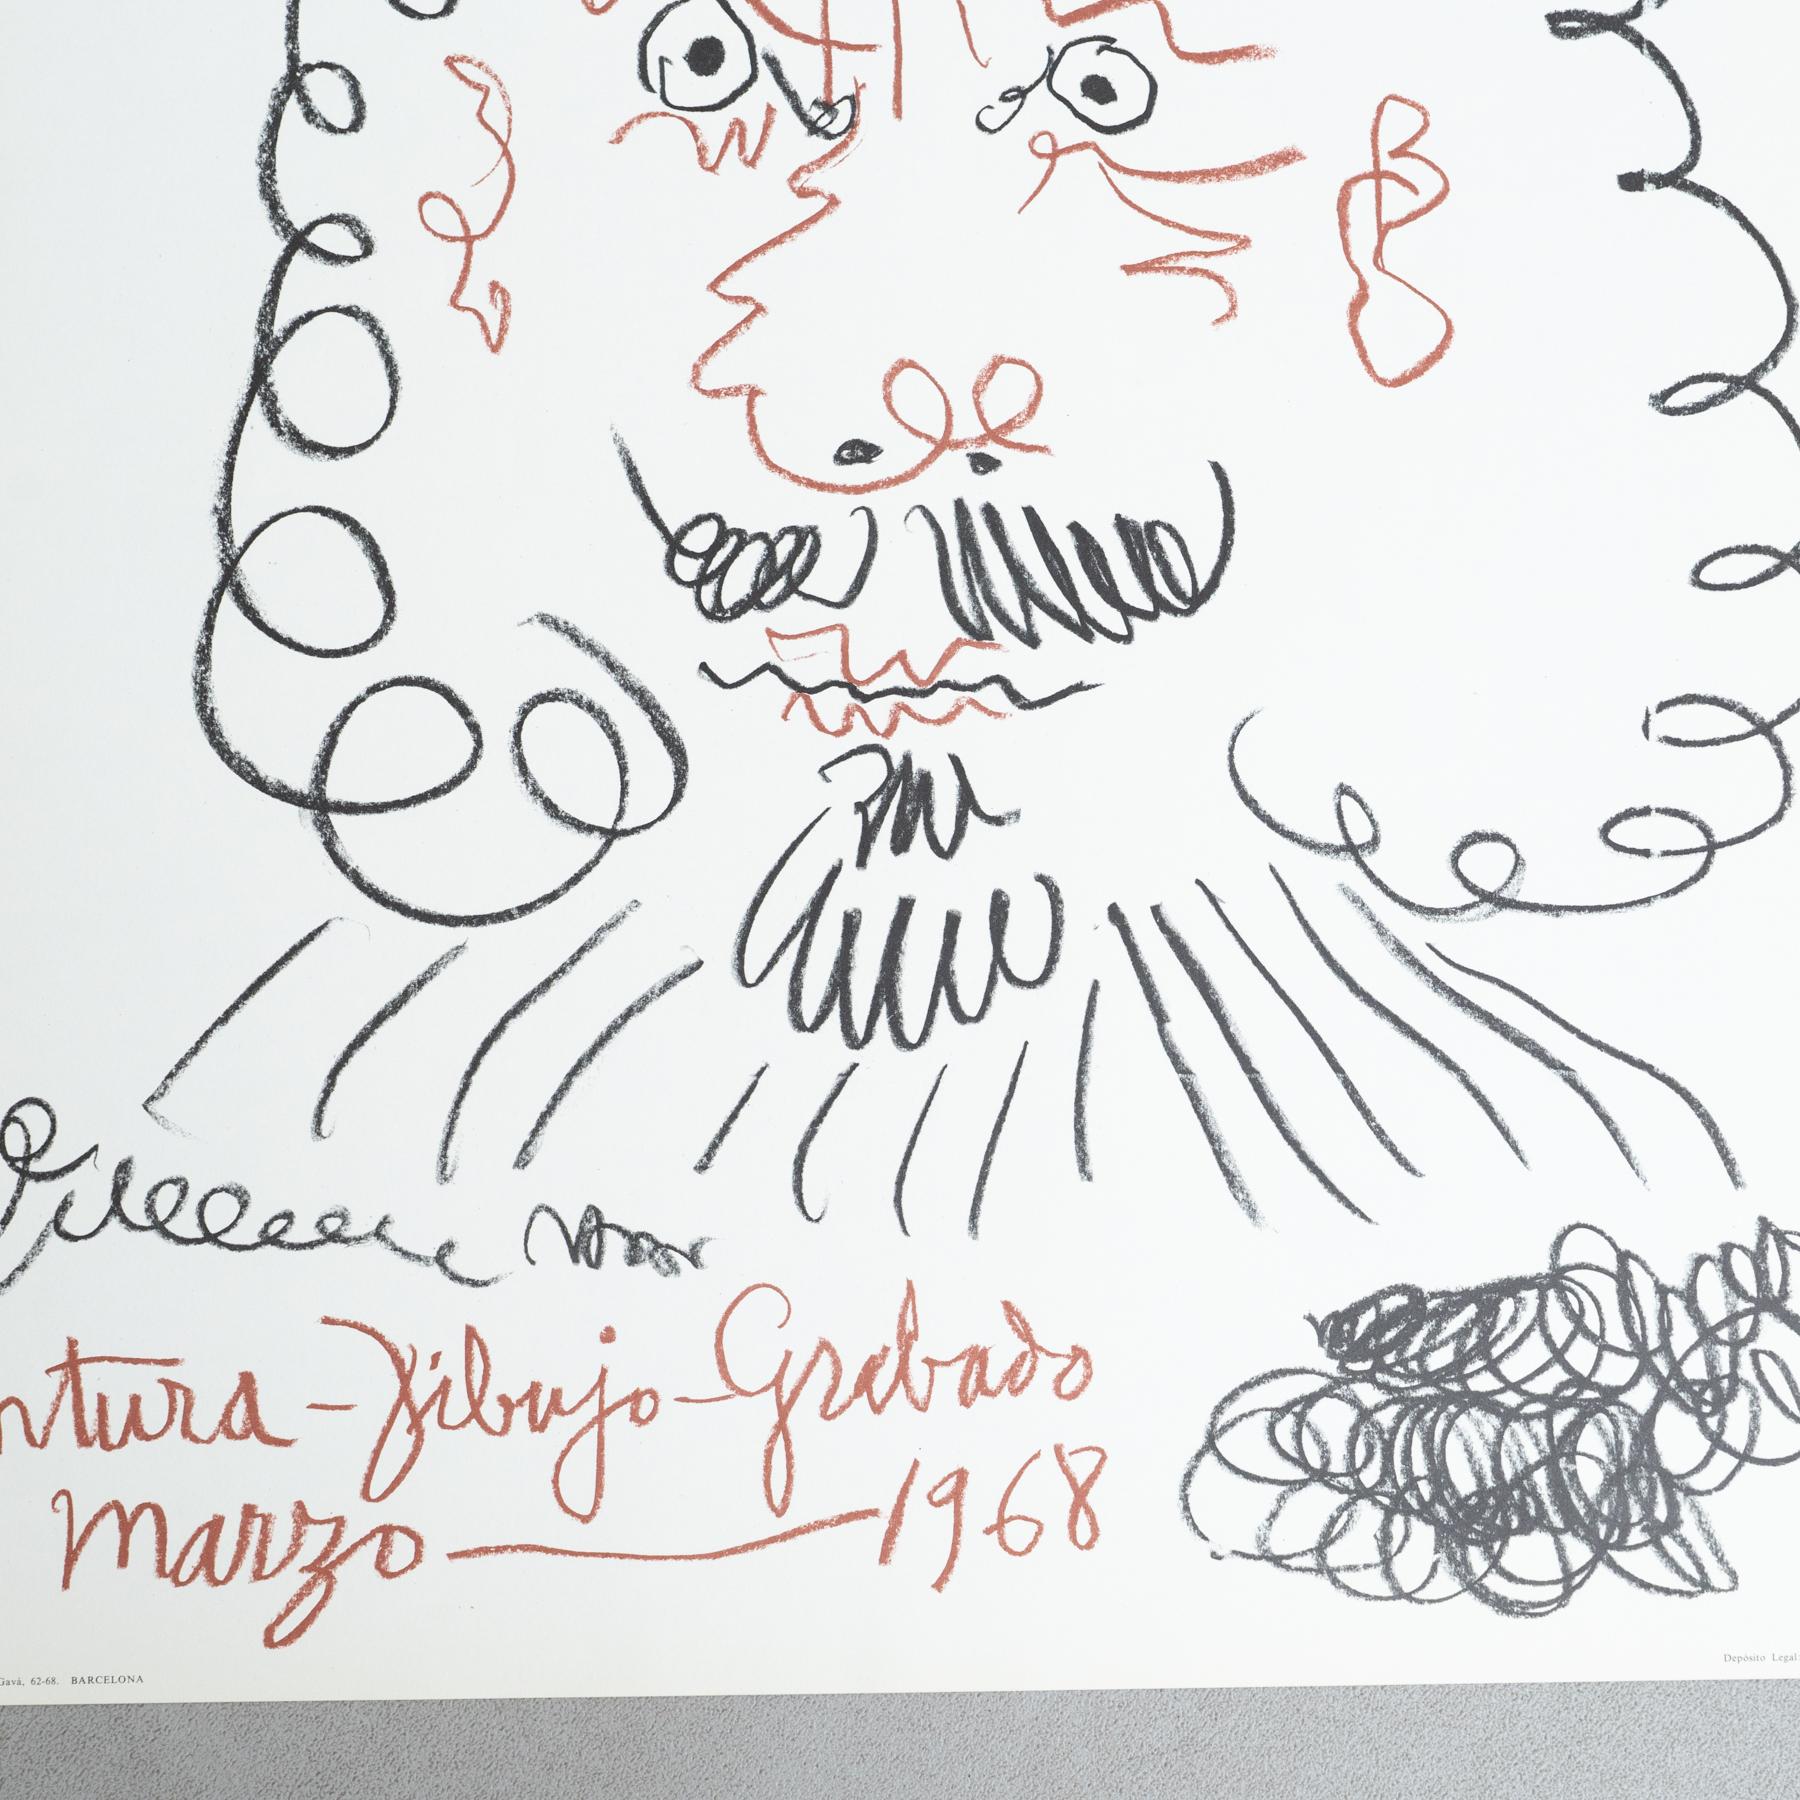 ntura - Dibujo - Grabado
Marzo — 1968
Gavá, 62-68. BARCELONA
Depósito Legal: